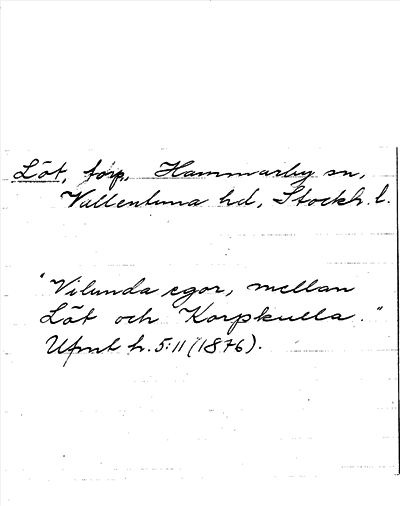 Löt, torp, Hammarby sn,
Vallentuna hd, Stockh. l.
"Vilunda egor, mellan
Löt och Korpkulla."
Ufmt h. 5:11 (1876).